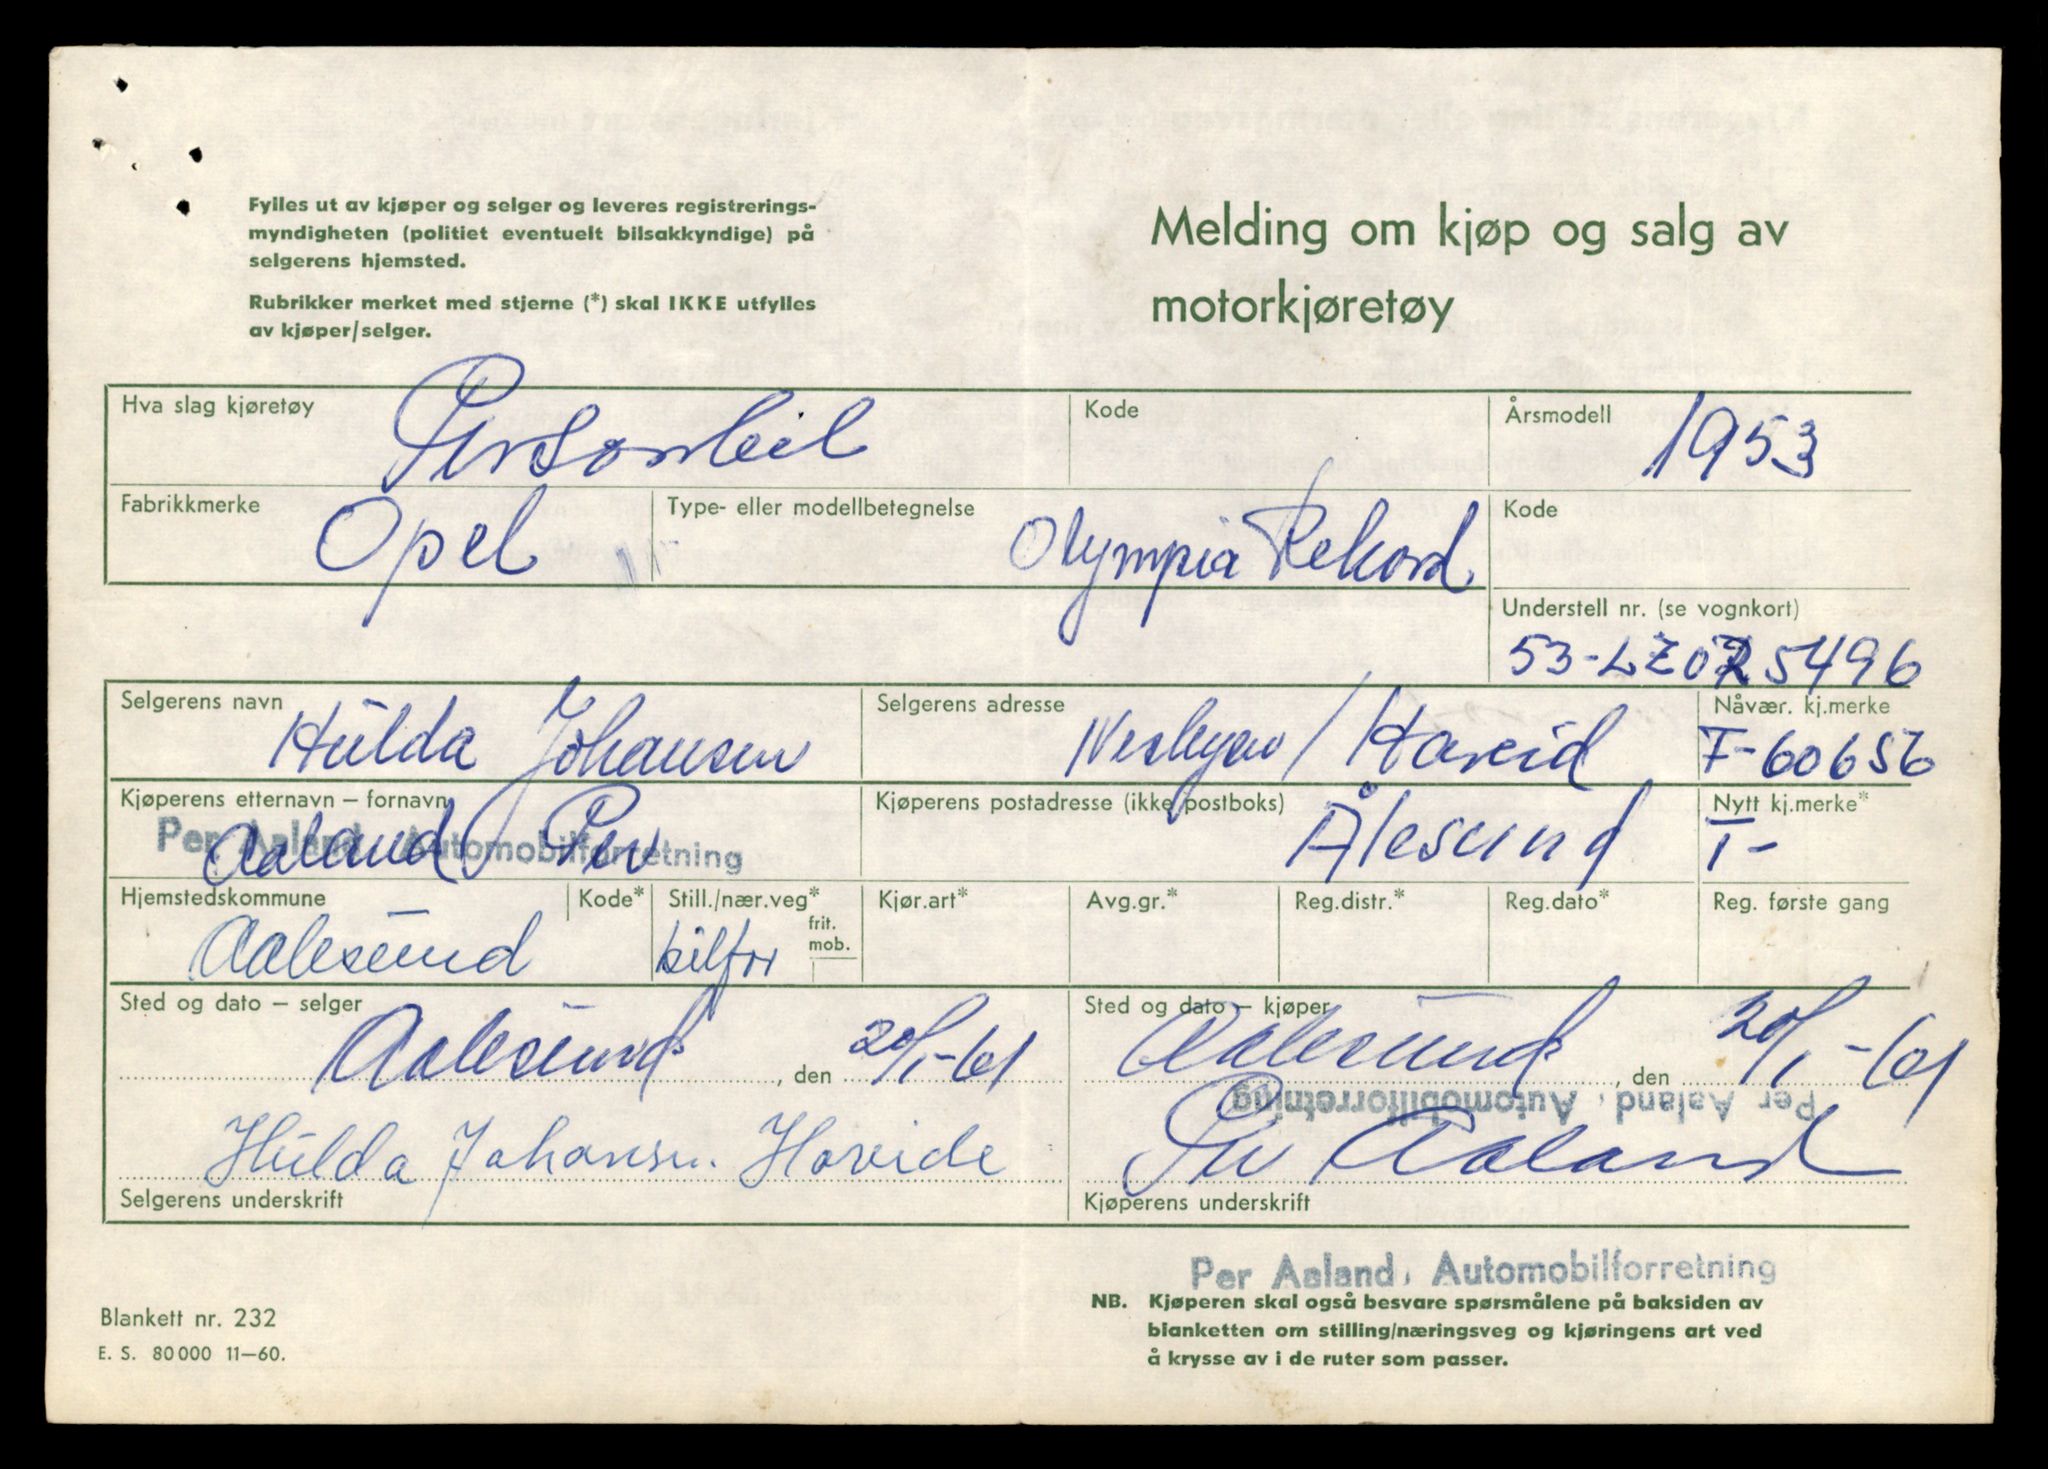 Fylles ut av kjøper og selger og leveres registrerings-
myndigheten (politiet eventuelt bilsakkyndige) på
selgerens hjemsted.
Rubrikker merket med stjerne (*) skal IKKE utfylles
av kjøper/selger.
Melding om kjøp og salg av
motorkjøretøy
Hva slag kjøretøy Personbil
Kode
Årsmodell 1953
Fabrikkmerke Opel
Type- eller modellbetegnelse Olympia Rekord
Kode
Understell nr. (se vognkort)
53-LZ 5496
Selgerens navn Hulda Johansen
Selgerens adresse / Hareid
Nåvær. kj.merke
T-60656
Kjøperens etternavn – fornavn
Per Aaland, Automobilforretning
Aaland Per
Kjøperens postadresse (ikke postboks) Ålesund
Nytt kj.merke*
T-
Hjemstedskommune
Aalesund
Kode*
Still./nær.veg*
bilfor
frit.
mob.
Kjør.art*
Avg.gr.*
Reg.distr.*
Reg.dato*
Reg. første gang
Sted og dato – selger
Aalesund, den 20/1-61
Hulda Johansen. Havide
Selgerens underskrift
Sted og dato – kjøper
Aalesund, den 20/1-61
Per Aaland, Automobilforretning
Per Aaland
Kjøperens underskrift
Per Aaland, Automobilforretning
NB. Kjøperen skal også besvare spørsmålene på baksiden av
blanketten om stilling/næringsveg og kjøringens art ved
å krysse av i de ruter som passer.
Blankett nr. 232
E. S. 80 000 11–60.